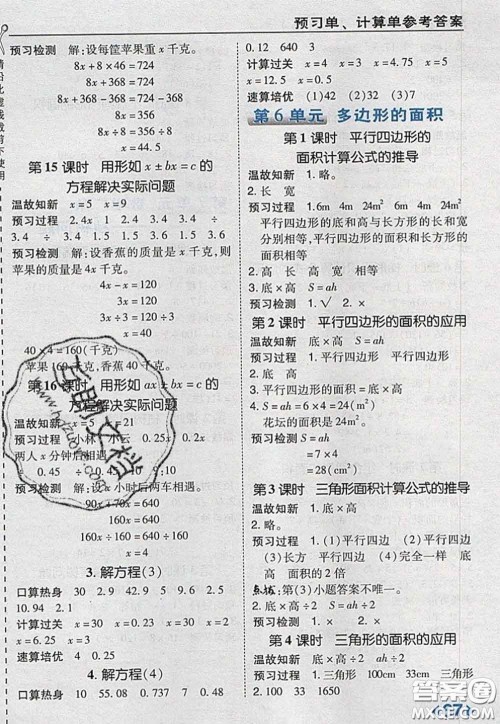 预习单、计算单参考答案
预习检测 解:设每筐苹果重 x 千克。
8x+8×46=724
8x+368=724
8x+368-368=724-368
8x=356
8x÷8=356÷8
x=44.5
第 15 课时 用形如 x±bx=c 的
方程解决实际问题
温故知新 x=5 x=9
预习过程 2.4x 1 2.4 3.4 ÷
3.4 ÷ 3.4 1.5 1.5 3.6 2.9
预习检测 解:设香蕉的质量是 x 千克,则
苹果的质量是 4x 千克。
4x-x=120
3x=120
3x÷3=120÷3
x=40
40×4=160(千克)
苹果 160 千克,香蕉 40 千克。
第 16 课时 用形如 ax±bx=c 的
方程解决实际问题
温故知新 x=5 x=21
预习过程 小林 小云 0.25x
两人 x 分钟后相遇。
0.45 ÷ 0.45 ÷ 0.45
预习检测 解:设 x 小时后两车相遇。
90x+70x=640
160x=640
160x÷160=640÷160
x=4
3. 解方程(3)
口算热身 30 2.9 42.9 5 9.6 2.5
10.94 2.1 0
计算过关 x=30 x=0.23 x=9
x=6.25 x=3
速算培优 4 0.25
4. 解方程(4)
口算热身 10 55.08 0.737 7 0.48
0.12 640 3
计算过关 x=4 x=3 x=4.75 x=5
x=12.5 x=0.5
速算培优 (1)42 (2)32 (3)7
第 6 单元 多边形的面积
第 1 课时 平行四边形的
面积计算公式的推导
温故知新 1.略。
2.长 宽
预习过程 1.6m 4m 24m² 6m 4m 24m²
平行四边形的底和高与长方形的长和宽
分别相等,平行四边形的面积和长方形的
面积相等。
2.高 长 高 宽 高 相等
3.底 高 S=ah
预习检测 1.√ 2.×
第 2 课时 平行四边形的面积的应用
温故知新 1.底×高 S=ah
2.略。
预习过程 1.高 2.高 3.平行四边形
4.S=ah=6×4=24(m²)
花坛的面积是 24m²。
预习检测 S=ah
=7×4
=28(cm²)
第 3 课时 三角形面积计算公式的推导
温故知新 1.底×高
2.略。
预习过程 1.(1)平行四边 (2)平行四边
(3)长方 平行四边 (4)完全一样 底
高 面积的 2 倍
点拨:第(3)小题答案不唯一。
2.底×高÷2 S=ah÷2
预习检测 1.× 2.×
第 4 课时 三角形的面积的应用
温故知新 1.底×高÷2 S=ah÷2
2.略。
预习过程 1.三角形 100cm 33cm 三角形
2.100 33 1650
答案圈
MXQE.COM